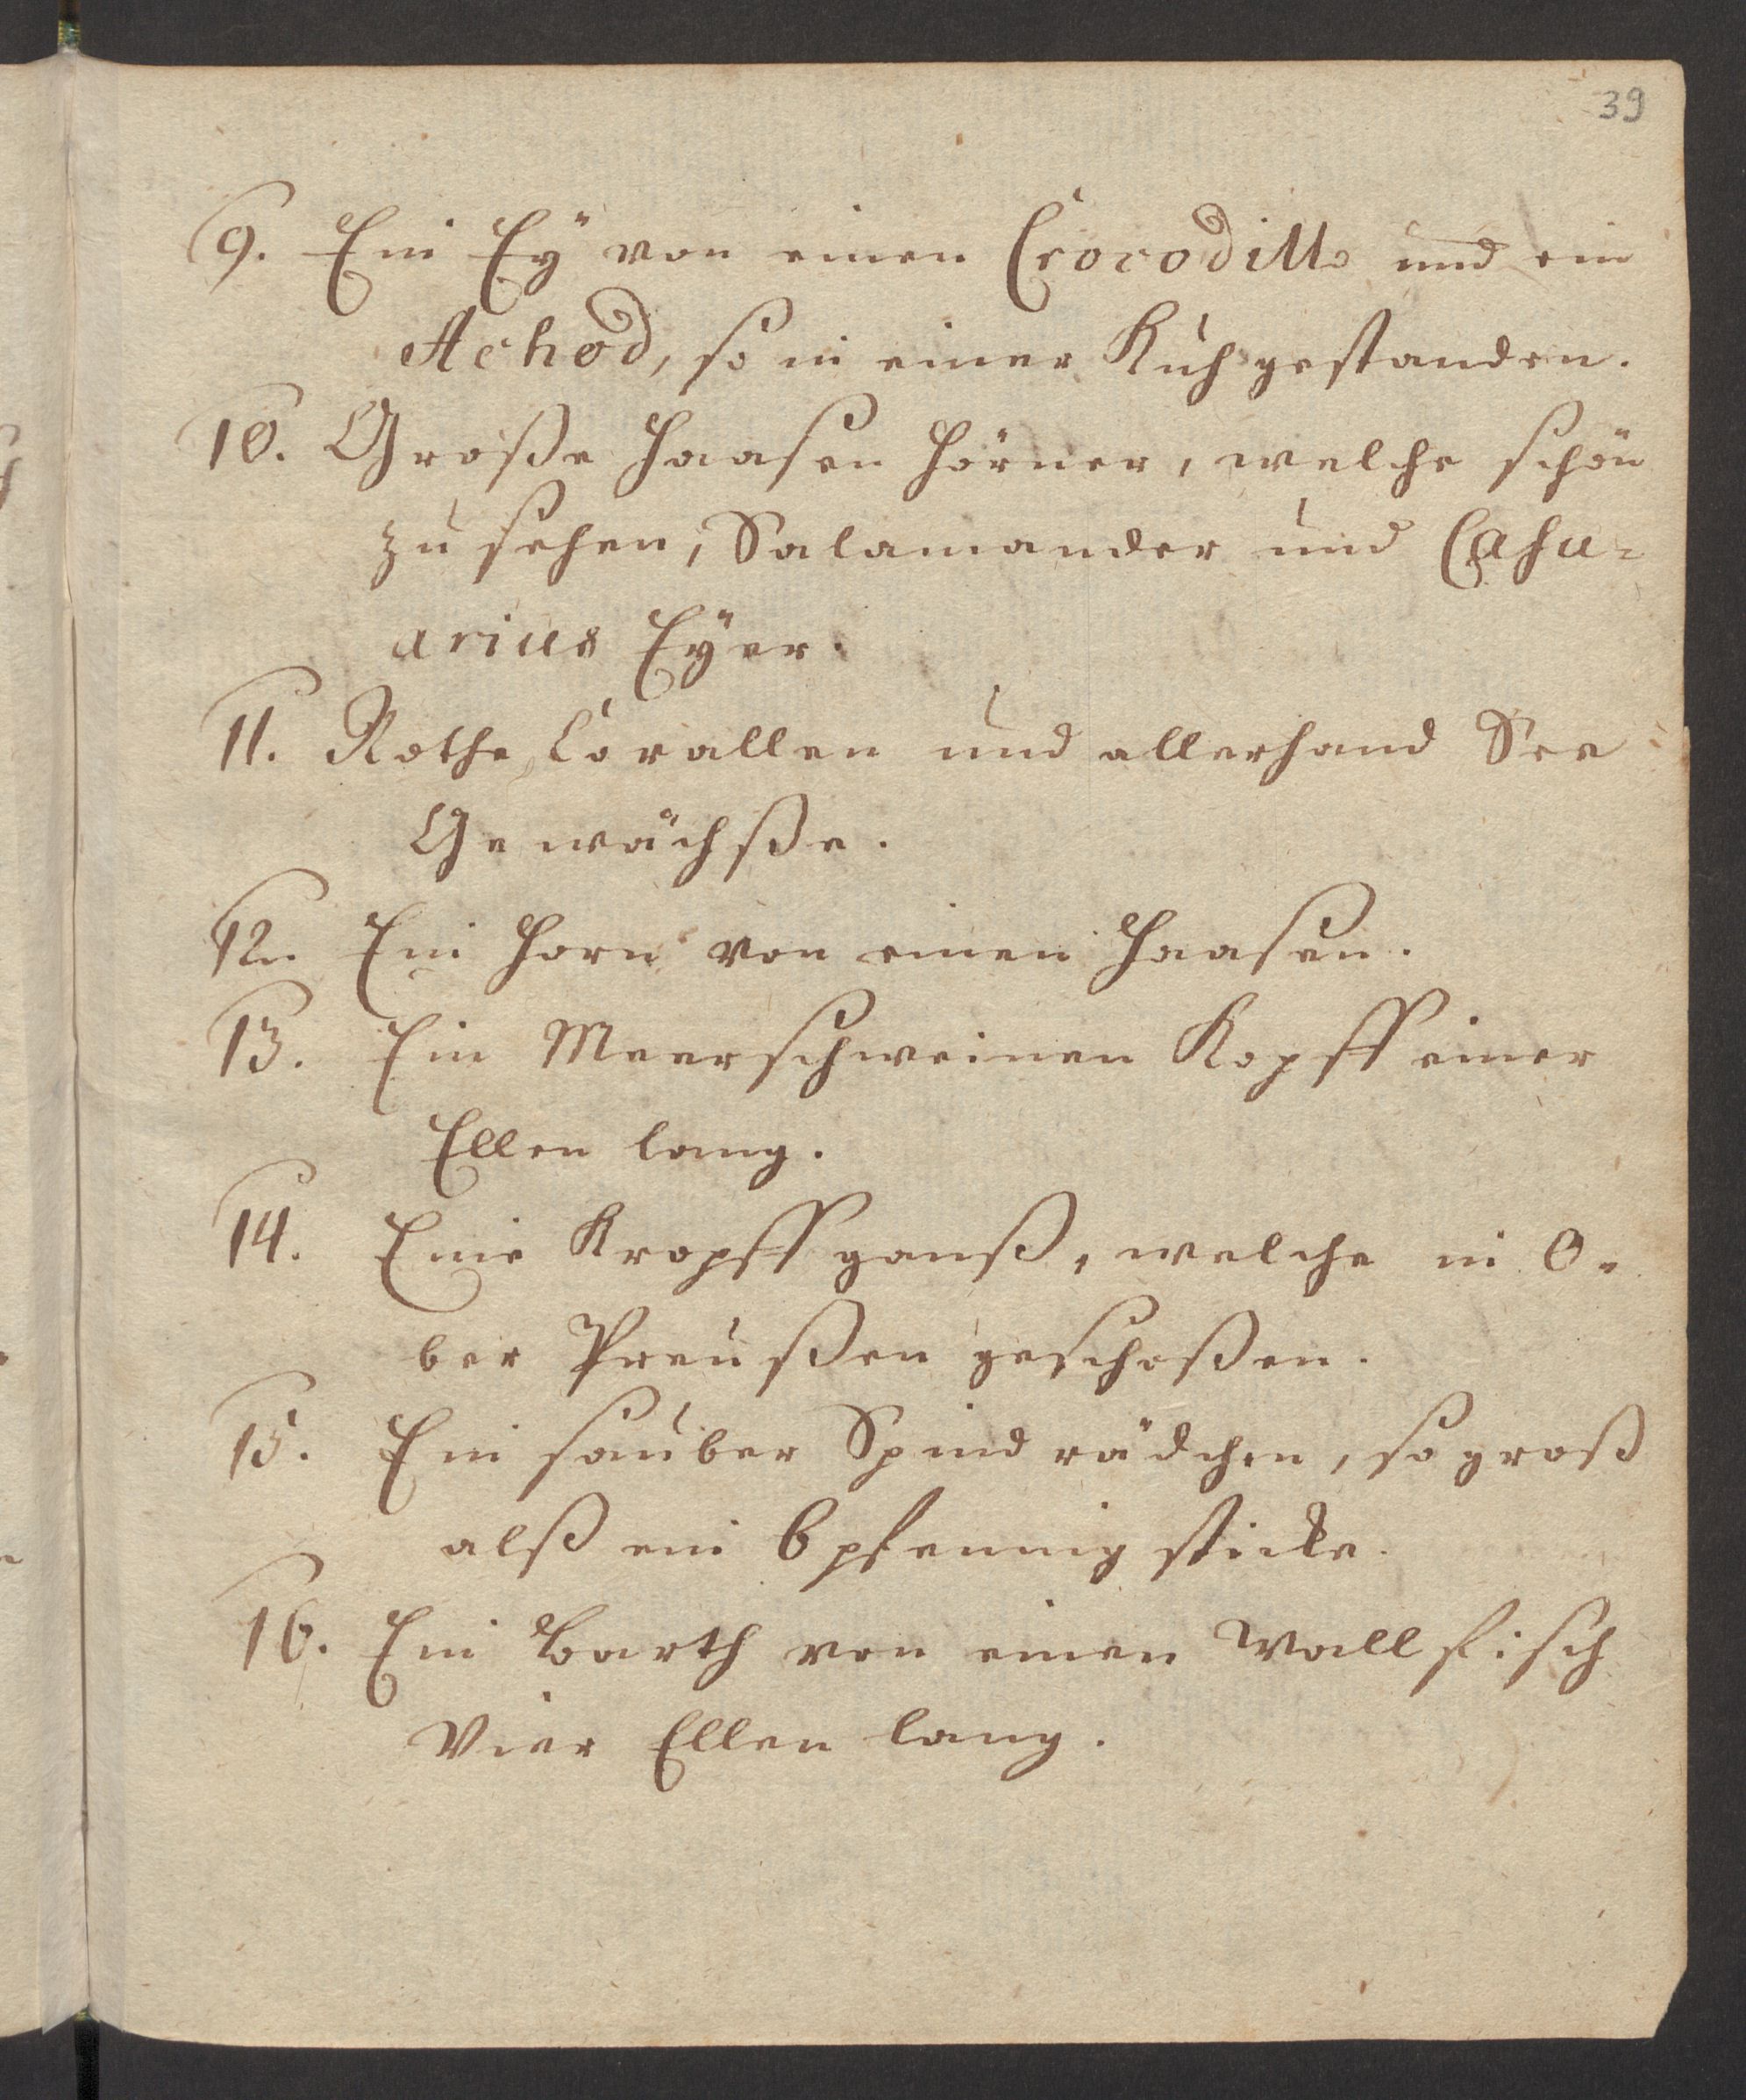 39
9. Ein Eÿ von einen Crocodills und ein
Achod, so in einer Kuh gestanden.
10. Große Haasen Hörner, welche schön
zu sehen, Salamander und Casu-
arius Eÿer.
11. Rothe Corallen und allerhand See
Gewächße.
12. Ein Horn von einen Haasen.
13. Ein Meerschweinen Kopff einer
Ellen lang.
14. Eine Kropffganß, welche in O-
ber Preußen geschoßen.
15. Ein sauber Spindrädchen, so groß
alß ein 6 pfennig sticke.
16. Ein Barth von einen Wallfisch
Vier Ellen lang.